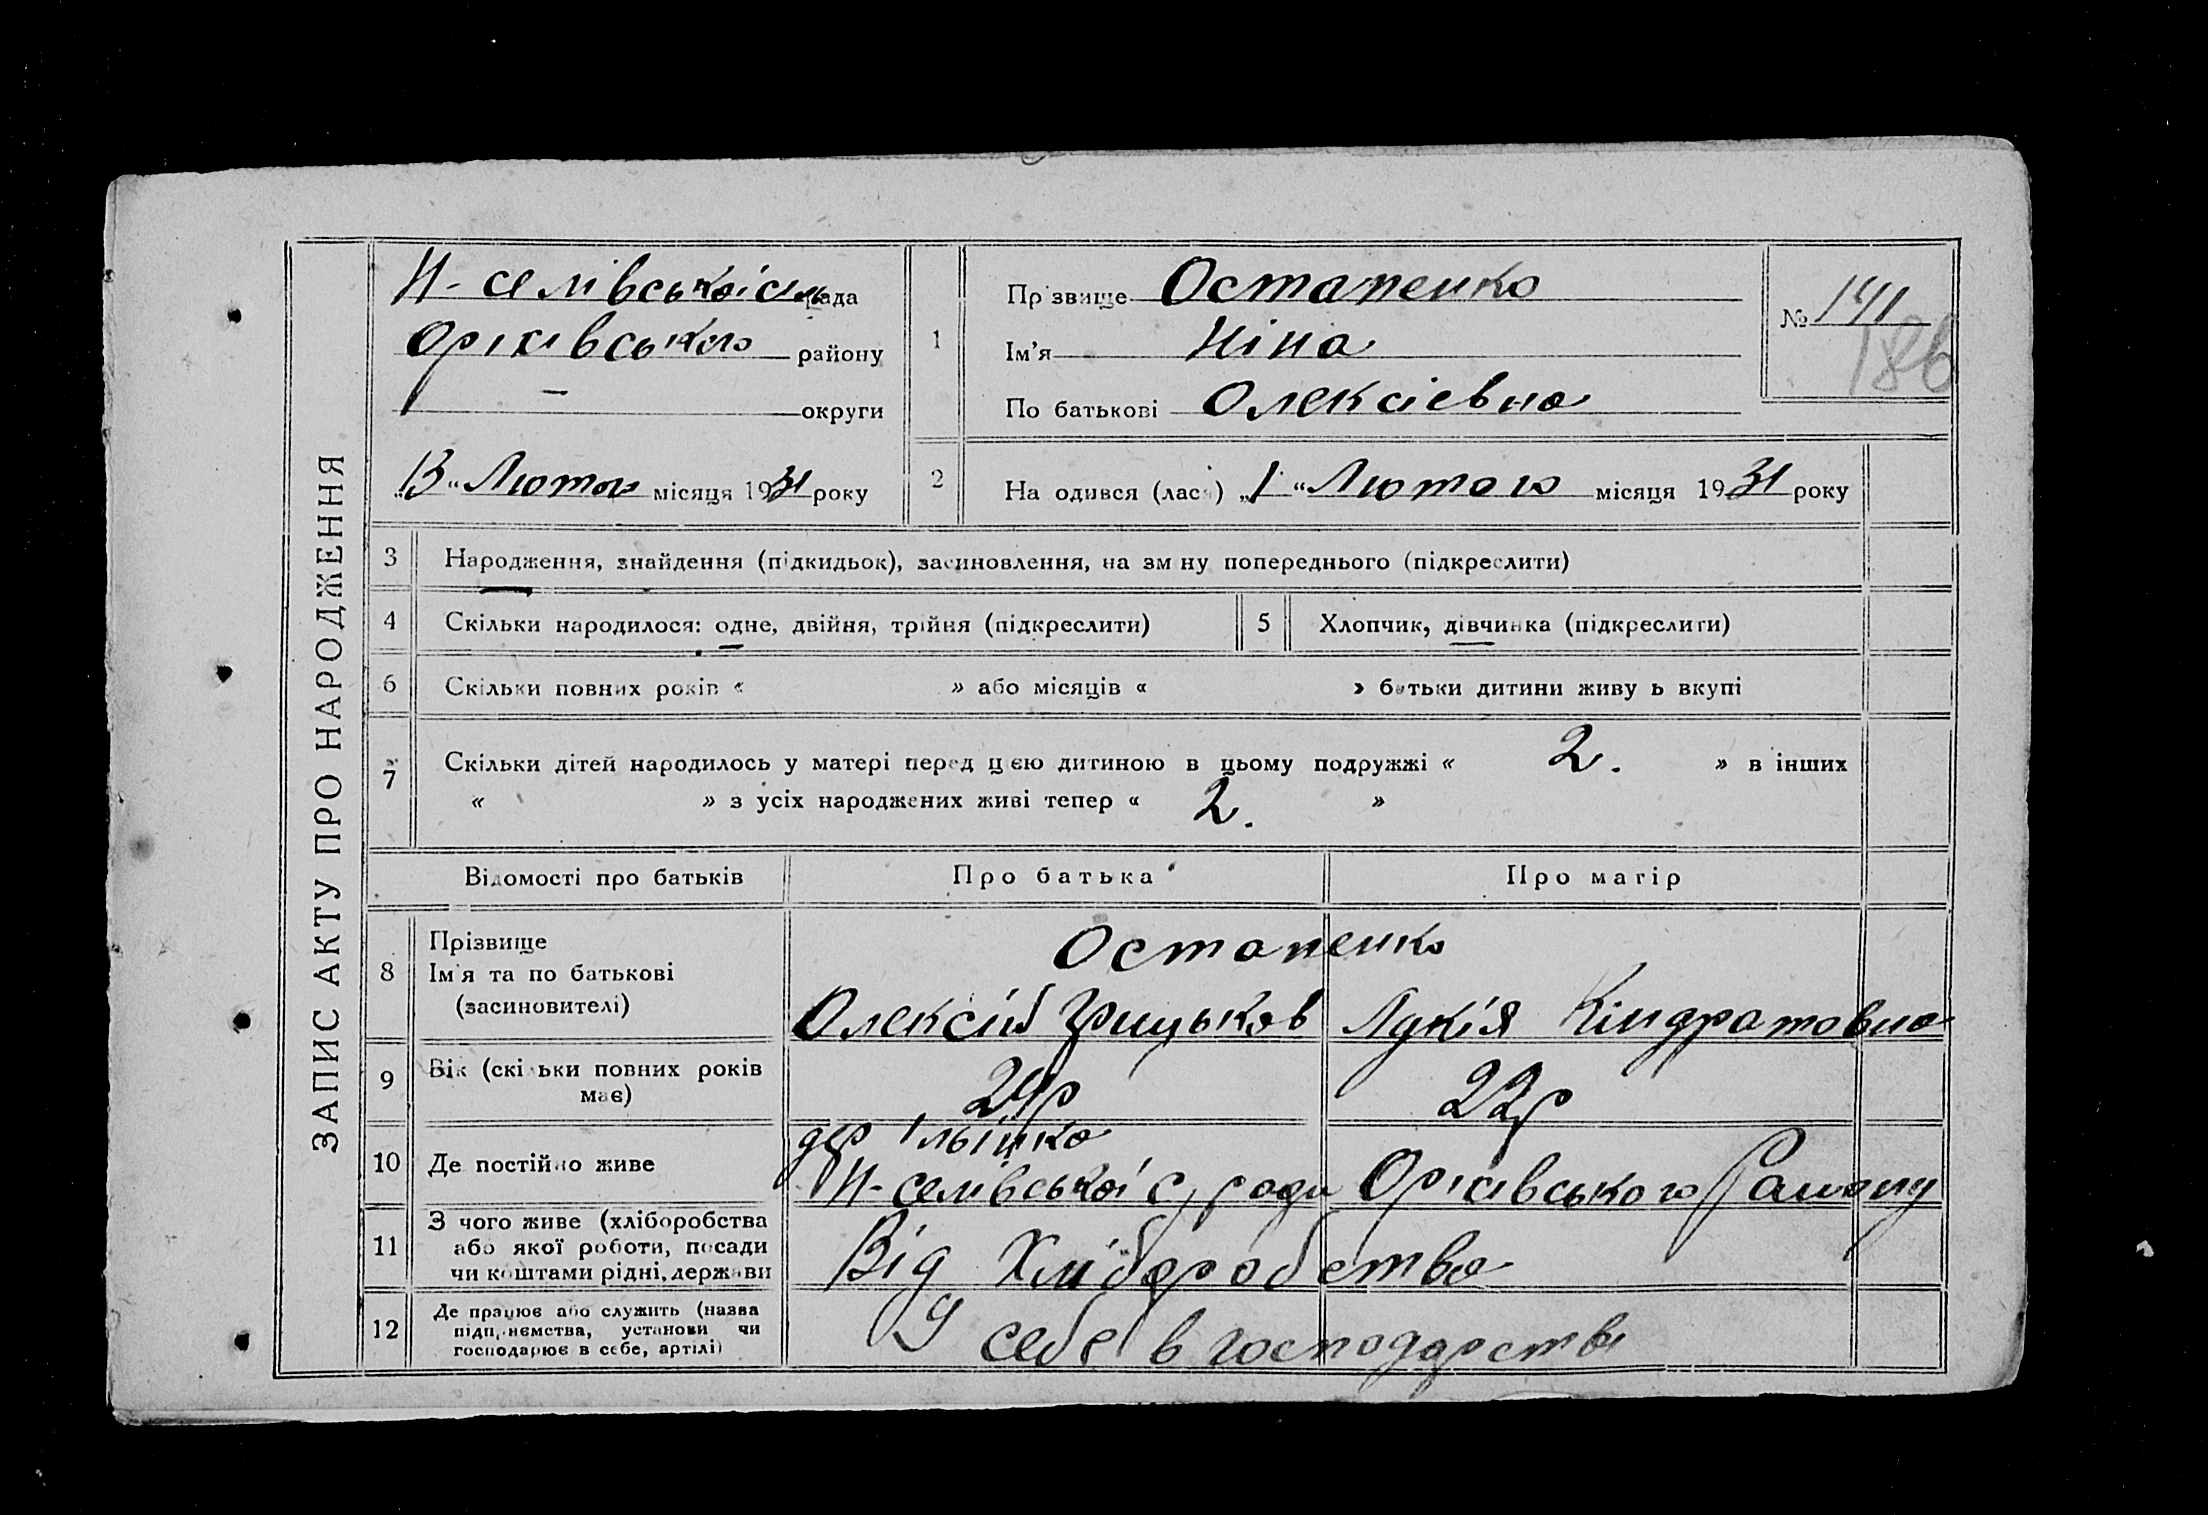 ЗАПИС АКТУ ПРО НАРОДЖЕННЯ
Н-селівської сільрада
Оріхівського району
— округи
„13“ Лютого місяця 1931 року
1
Прізвище Остапенко
Ім’я Ніна
По батькові Олексієвна
№ 141
186
2 Народився (лася) „1“ Лютого місяця 1931 року
3 Народження, знайдення (підкидьок), засиновлення, на зміну попереднього (підкреслити)
4 Скільки народилося: одне, двійня, трійня (підкреслити) 5 Хлопчик, дівчинка (підкреслити)
6 Скільки повних років « » або місяців « » батьки дитини живуть вкупі
7 Скільки дітей народилось у матері перед цією дитиною в цьому подружжі « 2. » в інших
« » з усіх народжених живі тепер « 2. »
Відомості про батьків Про батька Про матір
8 Прізвище
Ім’я та по батькові
(засиновителі)
Остапенко
Олексій Грицьков Лукія Кіндратовна
9 Вік (скільки повних років
має)
24р 22р
10 Де постійно живе
Н-селівської с/ради Оріхівського Району
11 З чого живе (хліборобства
або якої роботи, посади
чи коштами рідні, держави
Від Хліборобства
12 Де працює або служить (назва
підприємства, установи чи
господарює в себе, артілі)
У себе в господарстві